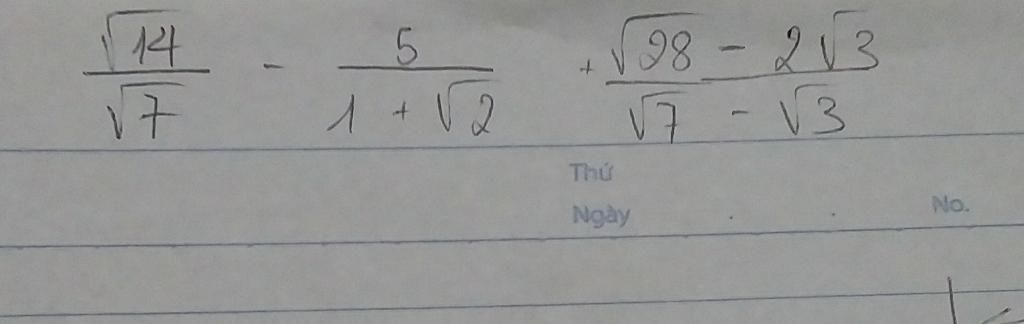 √14/√7 - 5/(1 + √2) + (√28 - 2√3)/(√7 - √3)
Thứ
Ngày . . No.